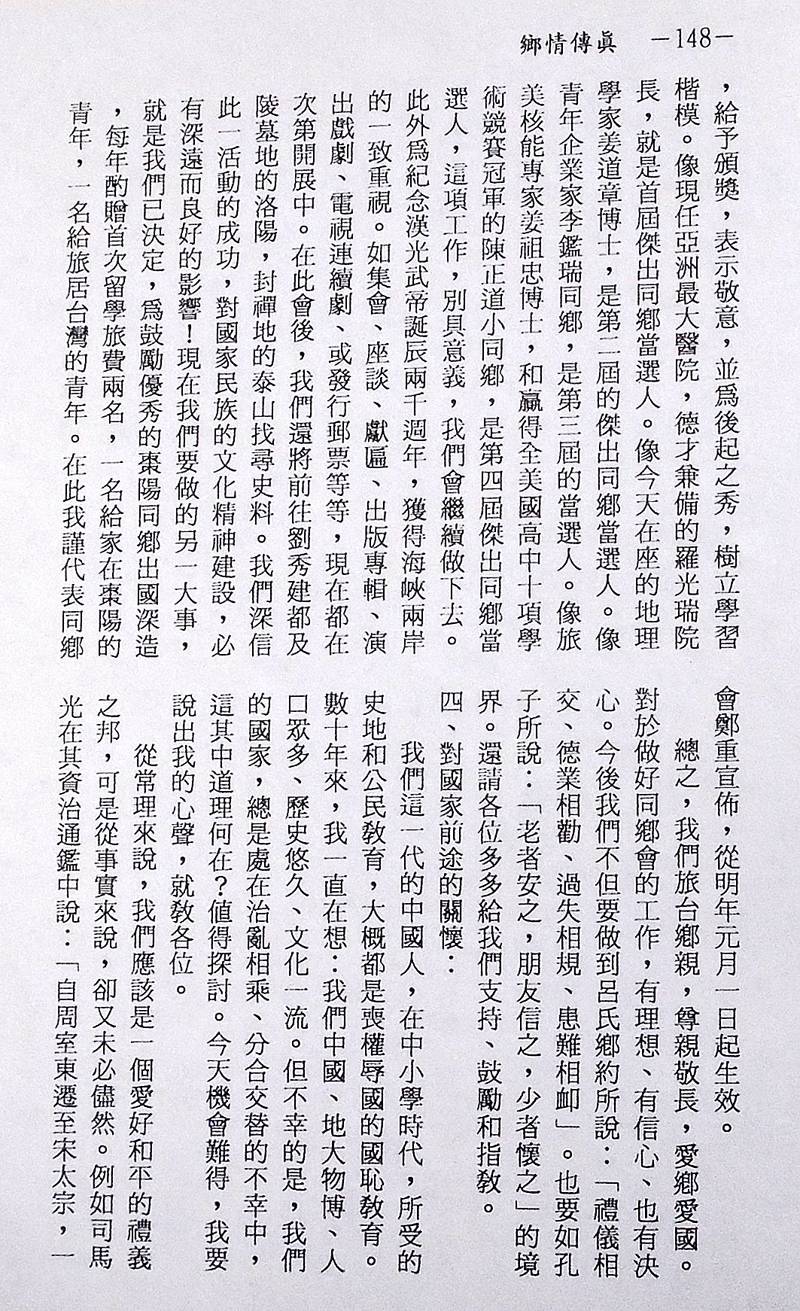 鄉情傳眞 —148—
，給予頒獎，表示敬意，並爲後起之秀，樹立學習
楷模。像現任亞洲最大醫院，德才兼備的羅光瑞院
長，就是首屆傑出同鄉當選人。像今天在座的地理
學家姜道章博士，是第二屆的傑出同鄉當選人。像
青年企業家李鑑瑞同鄉，是第三屆的當選人。像旅
美核能專家姜祖忠博士，和贏得全美國高中十項學
術競賽冠軍的陳正道小同鄉，是第四屆傑出同鄉當
選人，這項工作，別具意義，我們會繼續做下去。
此外爲紀念漢光武帝誕辰兩千週年，獲得海峽兩岸
的一致重視。如集會、座談、獻匾、出版專輯、演
出戲劇、電視連續劇、或發行郵票等等，現在都在
次第開展中。在此會後，我們還將前往劉秀建都及
陵墓地的洛陽，封禪地的泰山找尋史料。我們深信
此一活動的成功，對國家民族的文化精神建設，必
有深遠而良好的影響！現在我們要做的另一大事，
就是我們已決定，爲鼓勵優秀的棗陽同鄉出國深造
，每年酌贈首次留學旅費兩名，一名給家在棗陽的
青年，一名給旅居台灣的青年。在此我謹代表同鄉
會鄭重宣佈，從明年元月一日起生效。
總之，我們旅台鄉親，尊親敬長，愛鄉愛國。
對於做好同鄉會的工作，有理想、有信心、也有決
心。今後我們不但要做到呂氏鄉約所說：「禮儀相
交、德業相勸、過失相規、患難相卹」。也要如孔
子所說：「老者安之，朋友信之，少者懷之」的境
界。還請各位多多給我們支持、鼓勵和指教。
四、對國家前途的關懷：
我們這一代的中國人，在中小學時代，所受的
史地和公民教育，大概都是喪權辱國的國恥教育。
數十年來，我一直在想：我們中國、地大物博、人
口眾多、歷史悠久、文化一流。但不幸的是，我們
的國家，總是處在治亂相乘、分合交替的不幸中，
這其中道理何在？値得探討。今天機會難得，我要
說出我的心聲，就教各位。
從常理來說，我們應該是一個愛好和平的禮義
之邦，可是從事實來說，卻又未必儘然。例如司馬
光在其資治通鑑中說：「自周室東遷至宋太宗，一